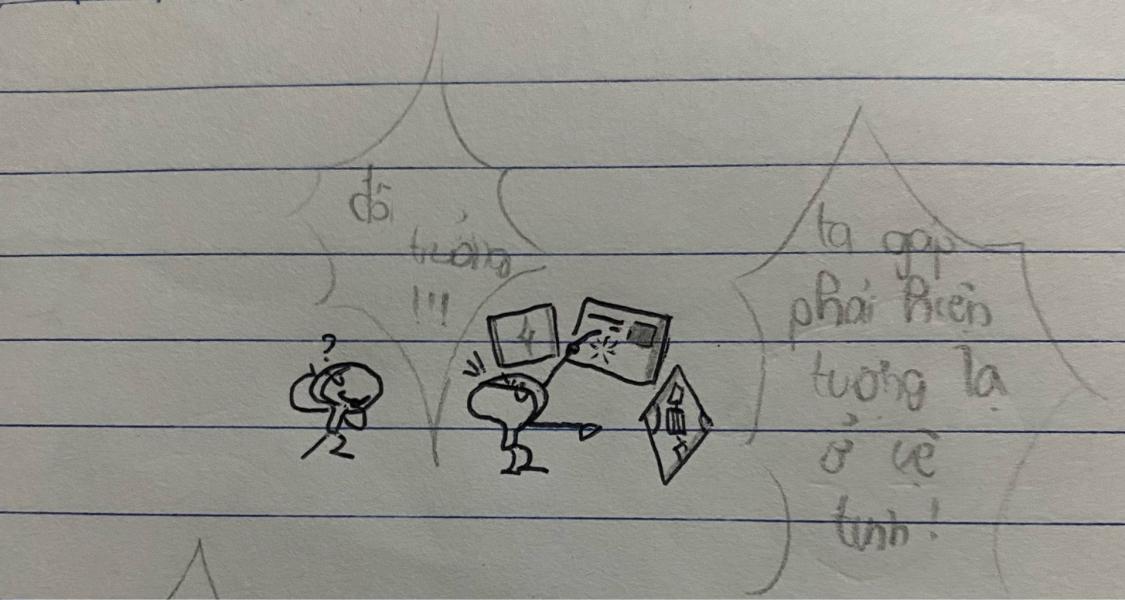 đô
trưởng
!!!
?
ta gặp
phải hiện
tượng lạ
ở vệ
tinh!